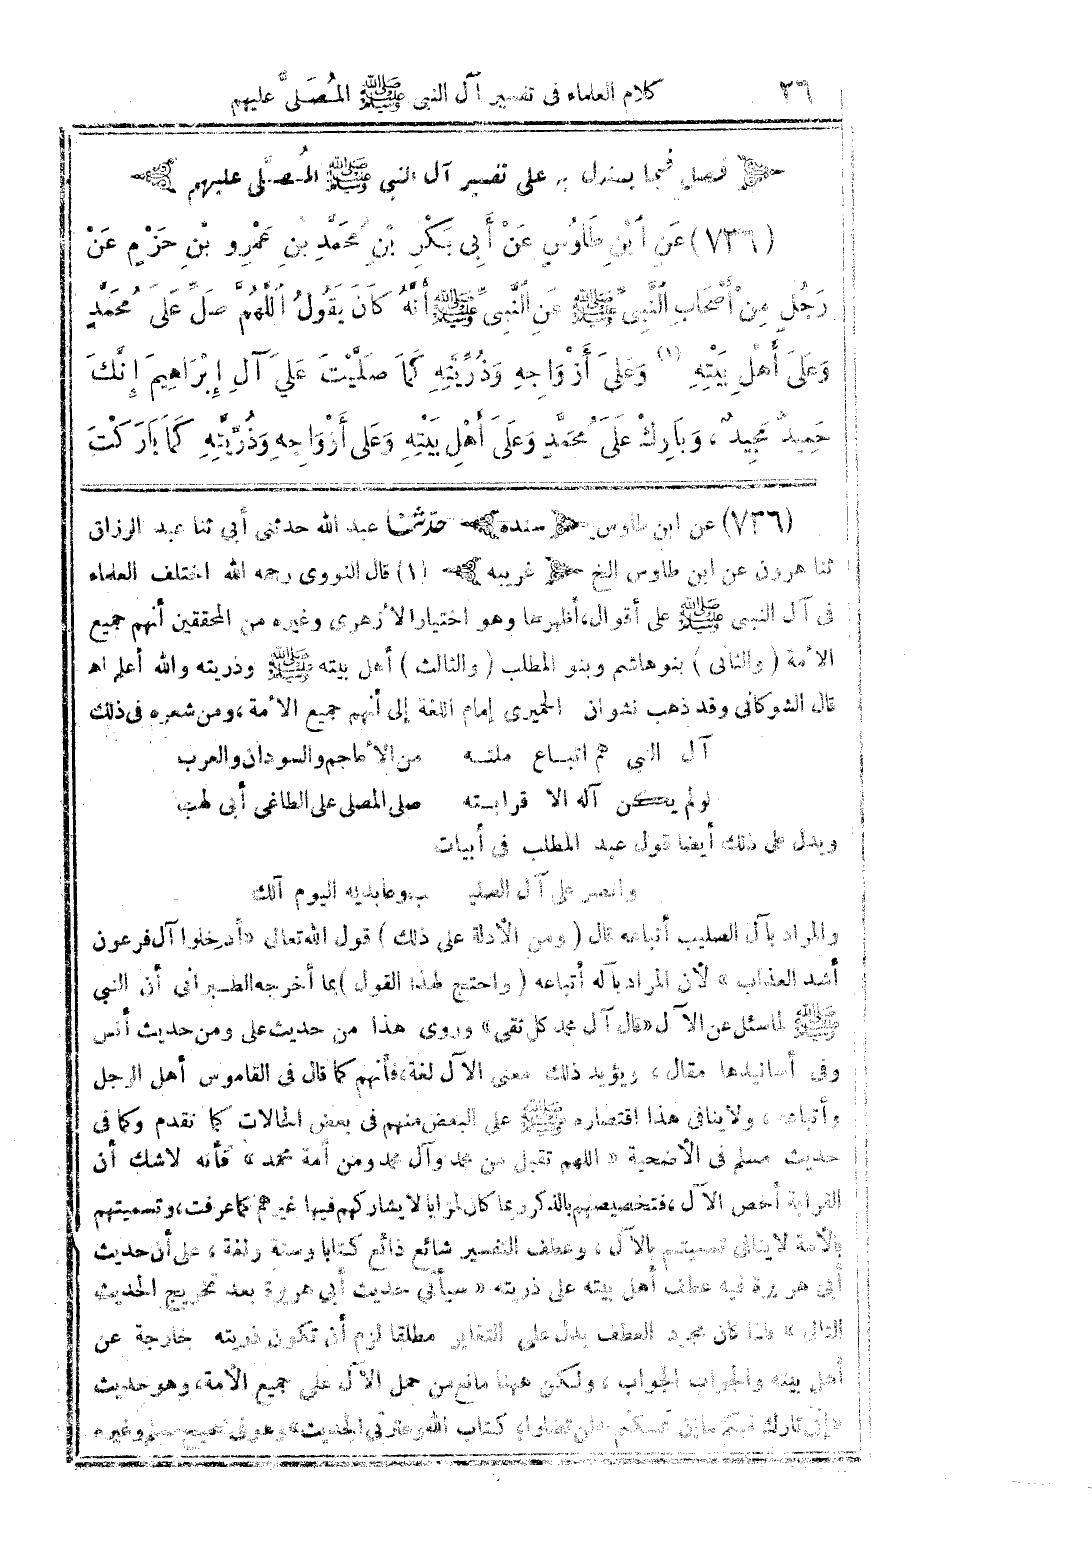 ٣٦ كلام العلماء فى تفسير آل النبى ﷺ المُصَلَّى عليهم
فصل فيما يستدل به على تفسير آل النبى ﷺ المُصلَّى عليهم
(٧٣٦) عَنِ ابْنِ طَاوُسٍ عَنْ أَبِى بَكْرِ بْنِ مُحَمَّدِ بْنِ عَمْرِو بْنِ حَزْمٍ عَنْ
رَجُلٍ مِنْ أَصْحَابِ النَّبِىِّ ﷺ عَنِ النَّبِىِّ ﷺ أَنَّهُ كَانَ يَقُولُ اَللَّهُمَّ صَلِّ عَلَى مُحَمَّدٍ
وَعَلَى أَهْلِ بَيْتِهِ (١) وَعَلَى أَزْوَاجِهِ وَذُرِّيَّتِهِ كَمَا صَلَّيْتَ عَلَى آلِ إِبْرَاهِيمَ إِنَّكَ
حَمِيدٌ مَجِيدٌ، وَبَارِكْ عَلَى مُحَمَّدٍ وَعَلَى أَهْلِ بَيْتِهِ وَعَلَى أَزْوَاجِهِ وَذُرِّيَّتِهِ كَمَا بَارَكْتَ
(٧٣٦) عن ابن طاوس سنده حدثنا عبد الله حدثنى أبى ثنا عبد الرزاق
ثنا هرون عن ابن طاوس الخ غريبه (١) قال النووى رحمه الله اختلف العلماء
فى آل النبى ﷺ على أقوال، أظهرها وهو اختيار الأزهرى وغيره من المحققين أنهم جميع
الأمة (والثانى) بنو هاشم وبنو المطلب (والثالث) أهل بيته ﷺ وذريته والله أعلم اهـ
قال الشوكانى وقد ذهب نشوان الحميرى إمام اللغة إلى أنهم جميع الأمة، ومن شعره فى ذلك
آل النبى هم اتباع ملته من الأعاجم والسودان والعرب
لو لم يكن آله الا قرابته صلى المصلى على الطاغى أبى لهب
ويدل على ذلك أيضا قول عبد المطلب فى أبيات
وانصر على آل الصليـ ـب وعابديه اليوم آلك
والمراد بآل الصليب أتباعه قال (ومن الأدلة على ذلك) قول الله تعالى «أدخلوا آل فرعون
أشد العذاب» لأن المراد بآله أتباعه (واحتج لهذا القول) بما أخرجه الطبرانى أن النبى
ﷺ لما سئل عن الآل «قال آل محمد كل تقى» وروى هذا من حديث على ومن حديث أنس
وفى أسانيدها مقال، ويؤيد ذلك معنى الآل لغة، فأنهم كما قال فى القاموس أهل الرجل
وأتباعه، ولا ينافى هذا اقتصاره ﷺ على البعض منهم فى بعض الحالات كما تقدم وكما فى
حديث مسلم فى الأضحية «اللهم تقبل من محمد وآل محمد ومن أمة محمد» فأنه لاشك أن
القرابة أخص الآل، فتخصيصهم بالذكر ربما كان لمزايا لا يشاركهم فيها غيرهم كما عرفت، وتسميتهم
بالأمة لا ينافى تسميتهم بالآل، وعطف التفسير شائع ذائع كتابا وسنة ولغة، على أن حديث
أبى هريرة فيه عطف أهل بيته على ذريته «سيأتى حديث أبى هريرة بعد تخريج الحديث
التالى» فاذا كان مجرد العطف يدل على التغاير مطلقا لزم أن تكون ذريته خارجة عن
أهل بيته والجواب الجواب، ولكن ههنا مانع من حمل الآل على جميع الأمة، وهو حديث
«إنى تارك فيكم ما إن تمسكتم به لن تضلوا، كتاب الله وعترتى الحديث» وهو فى صحيح مسلم وغيره